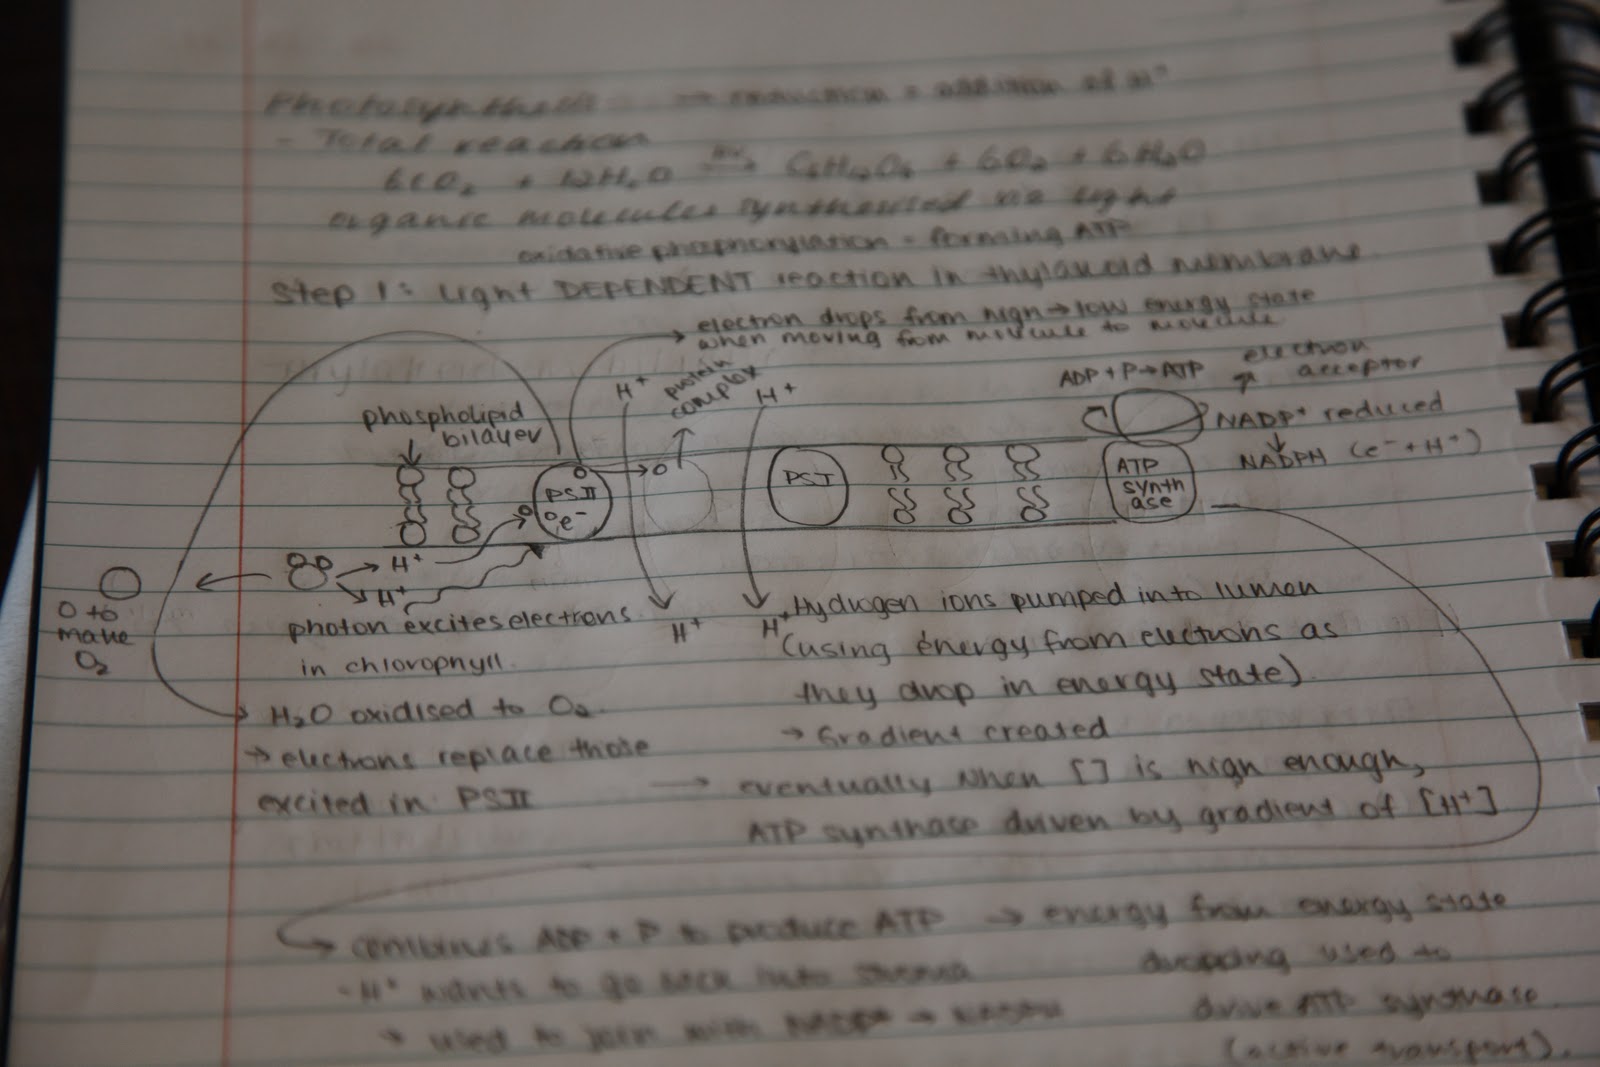 Photosynthesis → reduction = addition of H⁺
- Total reaction
6CO₂ + 12H₂O → C₆H₁₂O₆ + 6O₂ + 6H₂O
organic molecules synthesised via light
oxidative phosphorylation = forming ATP
Step 1: Light DEPENDENT reaction in thylakoid membrane
→ electron drops from high → low energy state
when moving from molecule to molecule
phospholipid
bilayer
H⁺
protein
complex
H⁺
ADP + P → ATP
electron
acceptor
NADP⁺ reduced
↓
NADPH (e⁻ + H⁺)
PSII
e⁻
PSI
ATP
synth
ase
H⁺
H⁺
O to
make
O₂
photon excites electrons
in chlorophyll
H⁺
H⁺
Hydrogen ions pumped into lumen
(using energy from electrons as
they drop in energy state)
→ Gradient created
H₂O oxidised to O₂
→ electrons replace those
excited in PSII
→ eventually when [] is high enough,
ATP synthase driven by gradient of [H⁺]
→ combines ADP + P to produce ATP → energy from energy state
dropping used to
drive ATP synthase
(active transport).
- H⁺ wants to go back into stroma
→ used to join with NADP⁺ → NADPH